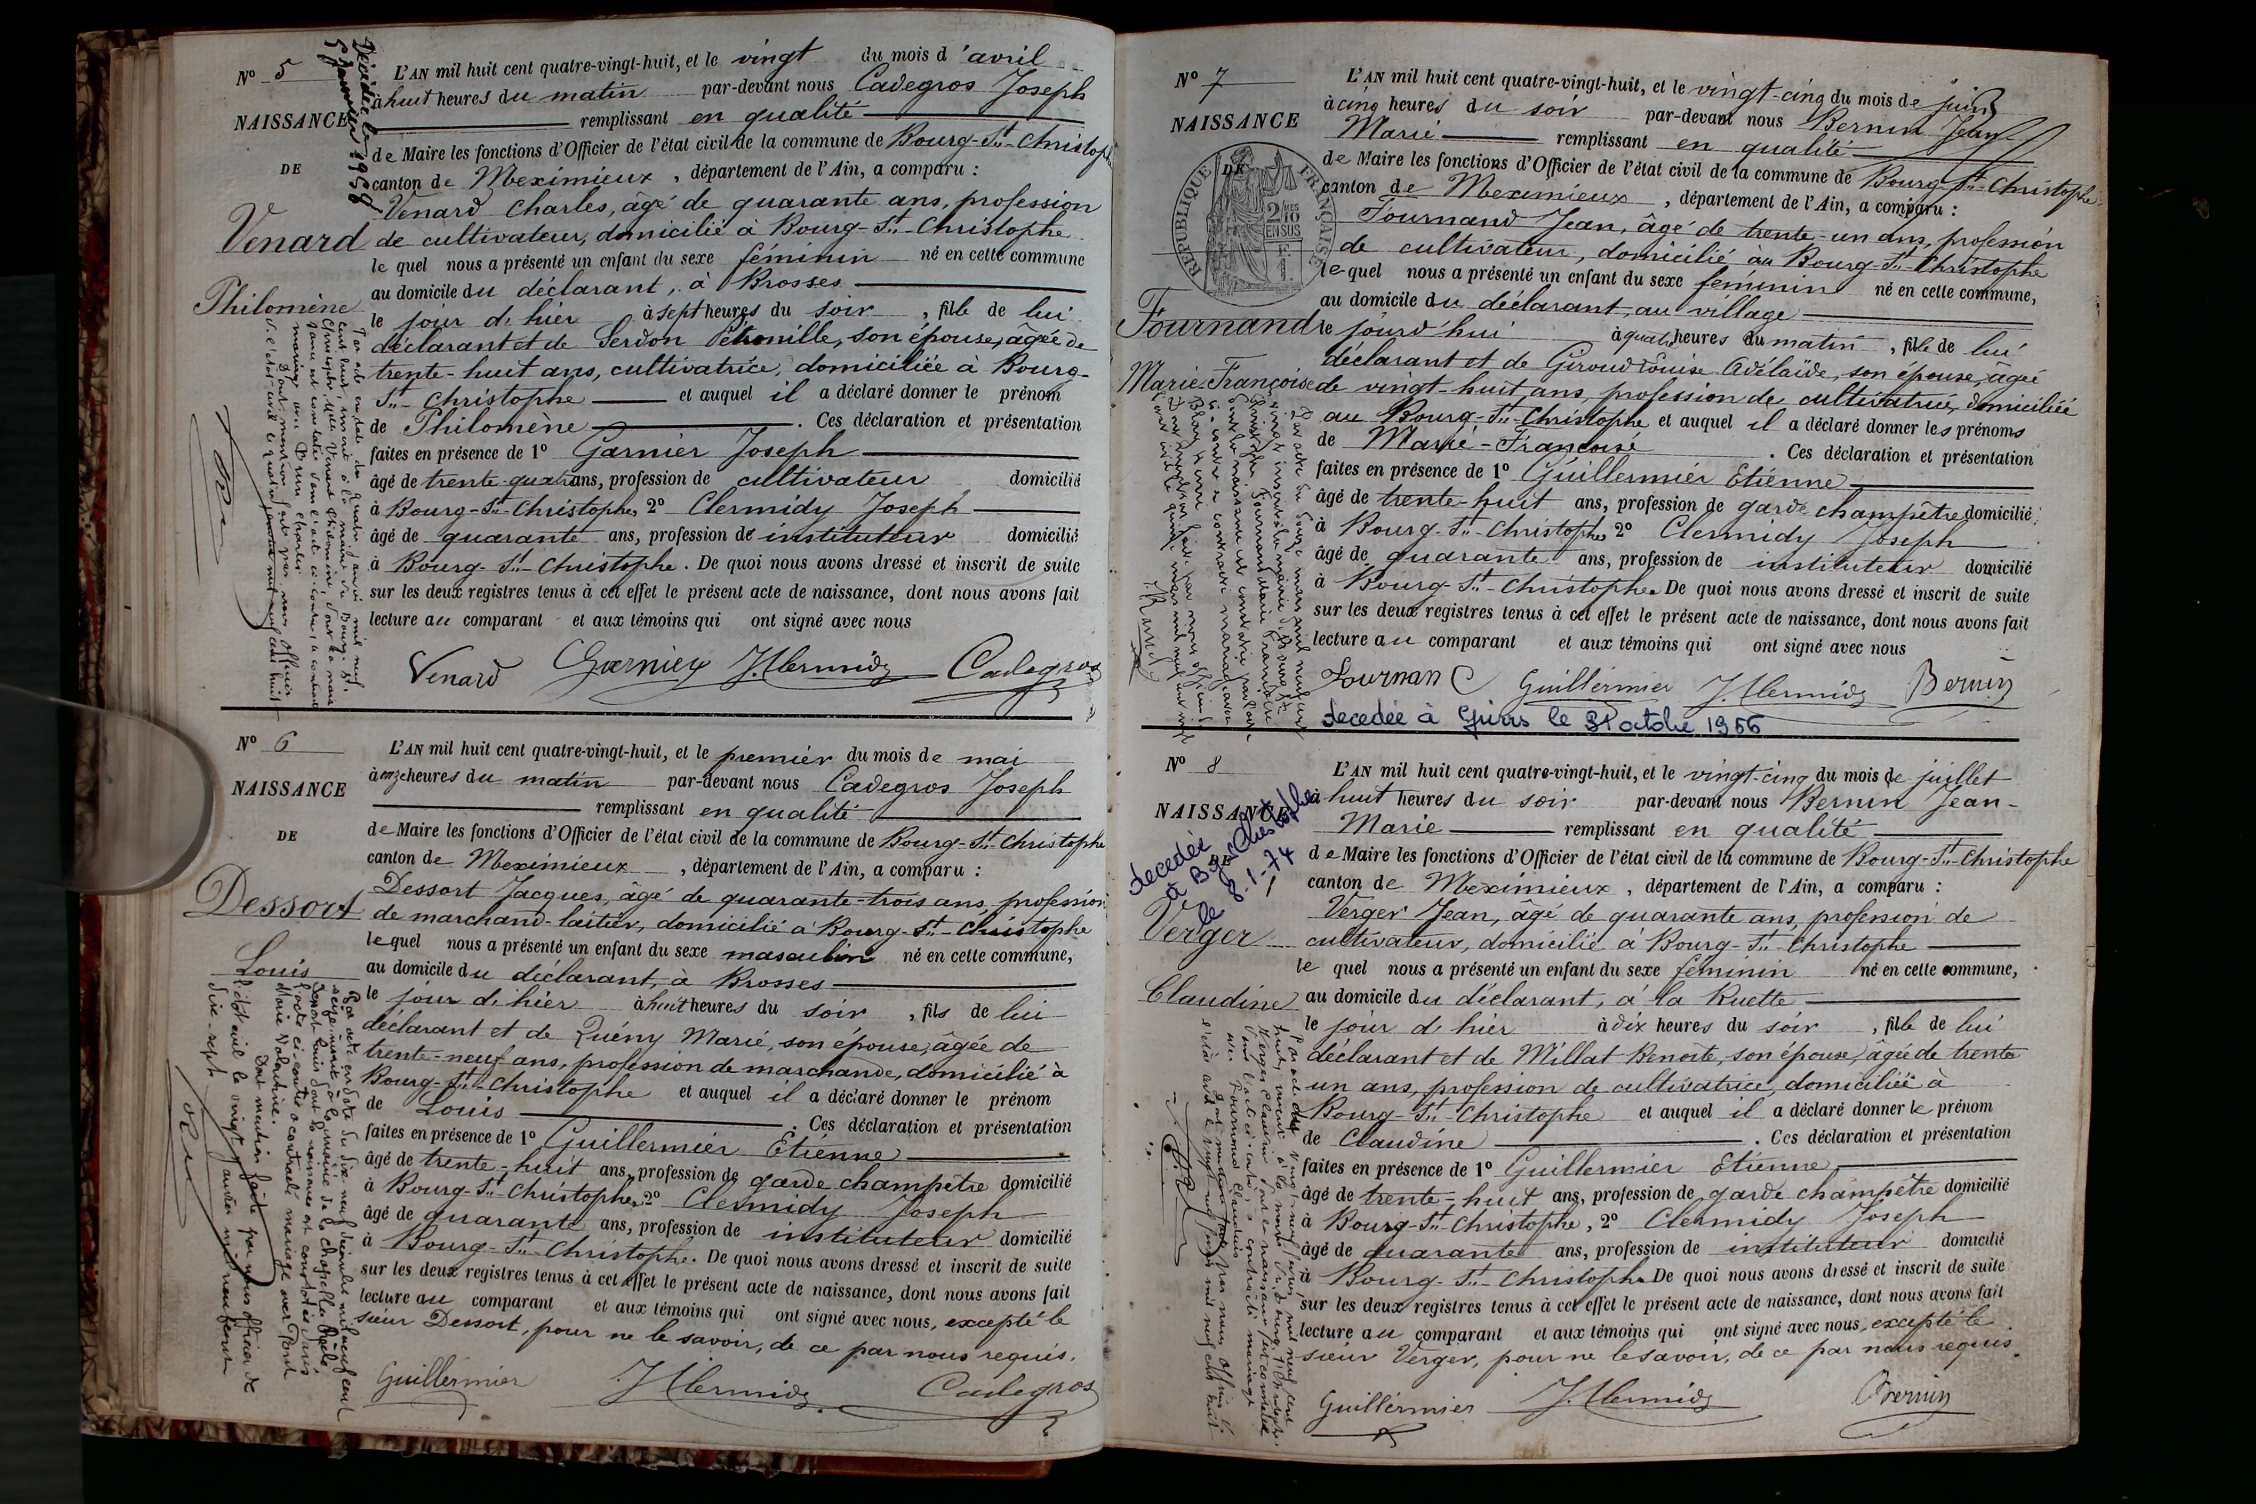 N° 5
NAISSANCE
DE
Venard
Philomène
Décédée le
5 Janvier 1958
L'AN mil huit cent quatre-vingt-huit, et le vingt du mois d'avril
à huit heures du matin par-devant nous Cadegros Joseph
remplissant en qualité
de Maire les fonctions d'Officier de l'état civil de la commune de Bourg-St-Christophe
canton de Meximieux, département de l'Ain, a comparu :
Venard Charles, âgé de quarante ans, profession
de cultivateur, domicilié à Bourg-St-Christophe
le quel nous a présenté un enfant du sexe féminin né en cette commune
au domicile du déclarant, à Brosses
le jour d'hier à sept heures du soir, fille de lui
déclarant et de Serdon Pétronille, son épouse, âgée de
trente-huit ans, cultivatrice, domiciliée à Bourg-
St-Christophe et auquel il a déclaré donner le prénom
de Philomène. Ces déclaration et présentation
faites en présence de 1° Garnier Joseph
âgé de trente-quatre ans, profession de cultivateur domicilié
à Bourg-St-Christophe, 2° Clermidy Joseph
âgé de quarante ans, profession de instituteur domicilié
à Bourg-St-Christophe. De quoi nous avons dressé et inscrit de suite
sur les deux registres tenus à cet effet le présent acte de naissance, dont nous avons fait
lecture au comparant et aux témoins qui ont signé avec nous
Venard Garnier J. Clermidy Cadegros
N° 6
NAISSANCE
DE
Dessort
Louis
L'AN mil huit cent quatre-vingt-huit, et le premier du mois de mai
à onze heures du matin par-devant nous Cadegros Joseph
remplissant en qualité
de Maire les fonctions d'Officier de l'état civil de la commune de Bourg-St-Christophe
canton de Meximieux, département de l'Ain, a comparu :
Dessort Jacques, âgé de quarante-trois ans, profession
de marchand-laitier, domicilié à Bourg-St-Christophe
le quel nous a présenté un enfant du sexe masculin né en cette commune,
au domicile du déclarant, à Brosses
le jour d'hier à huit heures du soir, fils de lui
déclarant et de Quény Marie, son épouse, âgée de
trente-neuf ans, profession de marchande, domicilié à
Bourg-St-Christophe et auquel il a déclaré donner le prénom
de Louis. Ces déclaration et présentation
faites en présence de 1° Guillermier Etienne
âgé de trente-huit ans, profession de garde champêtre domicilié
à Bourg-St-Christophe, 2° Clermidy Joseph
âgé de quarante ans, profession de instituteur domicilié
à Bourg-St-Christophe. De quoi nous avons dressé et inscrit de suite
sur les deux registres tenus à cet effet le présent acte de naissance, dont nous avons fait
lecture au comparant et aux témoins qui ont signé avec nous, excepté le
sieur Dessort, pour ne le savoir, de ce par nous requis.
Guillermier J. Clermidy Cadegros
N° 7
NAISSANCE
DE
RÉPUBLIQUE FRANÇAISE
2/10 EN SUS
Fournand
Marie-Françoise
L'AN mil huit cent quatre-vingt-huit, et le vingt-cinq du mois de juin
à cinq heures du soir par-devant nous Bernin Jean
Marie remplissant en qualité
de Maire les fonctions d'Officier de l'état civil de la commune de Bourg-St-Christophe
canton de Meximieux, département de l'Ain, a comparu :
Fournand Jean, âgé de trente-un ans, profession
de cultivateur, domicilié au Bourg-St-Christophe
le quel nous a présenté un enfant du sexe féminin né en cette commune,
au domicile du déclarant, au village
le jourd'hui à quatre heures du matin, fille de lui
déclarant et de Giroud Louise Adélaïde, son épouse, âgée
de vingt-huit ans, profession de cultivatrice, domiciliée
au Bourg-St-Christophe et auquel il a déclaré donner les prénoms
de Marie-Françoise. Ces déclaration et présentation
faites en présence de 1° Guillermier Etienne
âgé de trente-huit ans, profession de garde champêtre domicilié
à Bourg-St-Christophe 2° Clermidy Joseph
âgé de quarante ans, profession de instituteur domicilié
à Bourg-St-Christophe. De quoi nous avons dressé et inscrit de suite
sur les deux registres tenus à cet effet le présent acte de naissance, dont nous avons fait
lecture au comparant et aux témoins qui ont signé avec nous
Fournand Guillermier J. Clermidy Bernin
decedée à le 31 octobre 1956
N° 8
NAISSANCE
decedée
à Bg St Christophe
le 8.1.74
Verger
Claudine
L'AN mil huit cent quatre-vingt-huit, et le vingt-cinq du mois de juillet
à huit heures du soir par-devant nous Bernin Jean-
Marie remplissant en qualité
de Maire les fonctions d'Officier de l'état civil de la commune de Bourg-St-Christophe
canton de Meximieux, département de l'Ain, a comparu :
Verger Jean, âgé de quarante ans, profession de
cultivateur, domicilié à Bourg-St-Christophe
le quel nous a présenté un enfant du sexe féminin né en cette commune,
au domicile du déclarant, à la Ruette
le jour d'hier à dix heures du soir, fille de lui
déclarant et de Millat Benoîte, son épouse, âgée de trente
un ans, profession de cultivatrice, domiciliée à
Bourg-St-Christophe et auquel il a déclaré donner le prénom
de Claudine. Ces déclaration et présentation
faites en présence de 1° Guillermier Etienne
âgé de trente-huit ans, profession de garde champêtre domicilié
à Bourg-St-Christophe, 2° Clermidy Joseph
âgé de quarante ans, profession de instituteur domicilié
à Bourg-St-Christophe. De quoi nous avons dressé et inscrit de suite
sur les deux registres tenus à cet effet le présent acte de naissance, dont nous avons fait
lecture au comparant et aux témoins qui ont signé avec nous, excepté le
sieur Verger, pour ne le savoir, de ce par nous requis.
Guillermier J. Clermidy Bernin